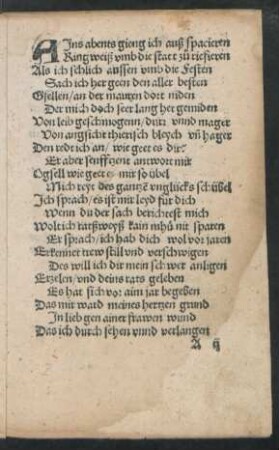 AIns abents gieng ich auß spacieren
Ring weiß vmb die statt zů refieren
Als ich schlich aussen vmb die Festen
Sach ich her geen den aller besten
Gsellen/ an der mauren dort niden
Der mich doch seer lang her gemiden
Von leib geschmogenn/ dürr vnnd mager
Von angsicht thierisch bleych vñ hager
Den redt ich an/ wie geet es dir?
Er aber seufftzent antwort mir
O gsell wie geet es mir so übel
Mich reyt des gantzē vnglücks schübel
Ich sprach/ es ist mir leyd für dich
Wenn du der sach berichtest mich
Wolt ich rats weyß kain mhů nit sparen
Er sprach/ ich hab dich wol vor jaren
Erkennet trew still vnd verschwigen
Des will ich dir mein schwer anligen
Erzelen/ vnd deins rats geleben
Es hat sich vor aim jar begeben
Das mir ward meines hertzen grund
In lieb gen ainer frawen wund
Das ich durch sehen vnnd verlangen
A ij